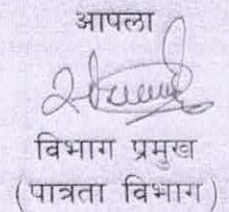 आपला
विभाग प्रमुख
(पात्रता विभाग)